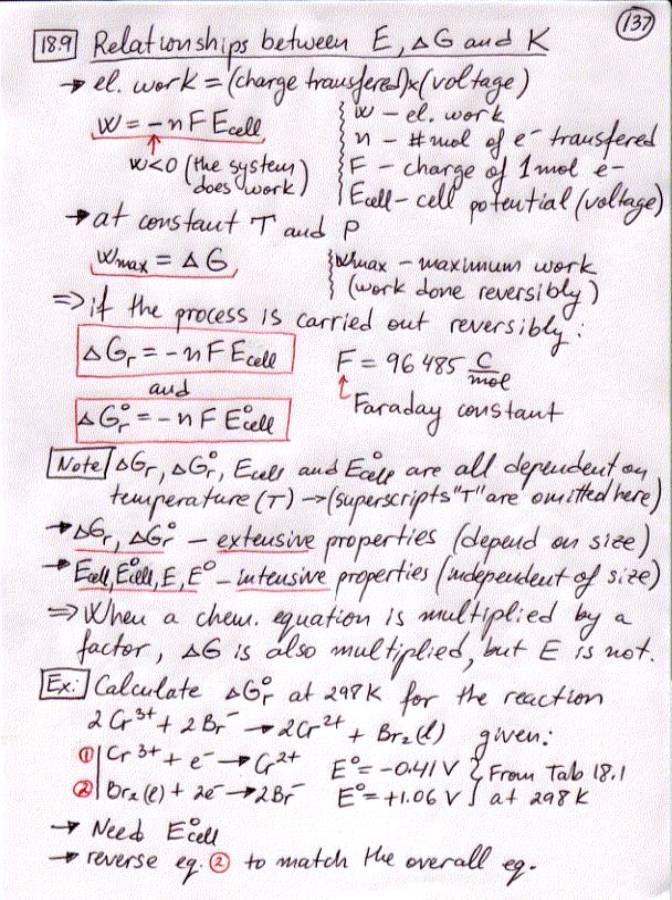 137
18.9 Relationships between E, ΔG and K
→ el. work = (charge transfered)x(voltage)
w = -nFEcell
w<0 (the system does work)
w – el. work
n – # mol of e⁻ transfered
F – charge of 1 mol e-
Ecell – cell potential (voltage)
→ at constant T and P
wmax = ΔG
wmax – maximum work
(work done reversibly)
⇒ if the process is carried out reversibly:
ΔGr = -nFEcell
and
ΔG°r = -nFE°cell
F = 96485 C/mol
Faraday constant
Note ΔGr, ΔG°r, Ecell and E°cell are all dependent on
temperature (T) → (superscripts "T" are omitted here)
→ ΔGr, ΔG°r – extensive properties (depend on size)
→ Ecell, E°cell, E, E° – intensive properties (independent of size)
⇒ When a chem. equation is multiplied by a
factor, ΔG is also multiplied, but E is not.
Ex: Calculate ΔG°r at 298K for the reaction
2Cr³⁺ + 2Br⁻ → 2Cr²⁺ + Br₂(l) given:
① Cr³⁺ + e⁻ → Cr²⁺ E° = -0.41 V From Tab 18.1
② Br₂(l) + 2e⁻ → 2Br⁻ E° = +1.06 V at 298K
→ Need E°cell
→ reverse eq. ② to match the overall eq.